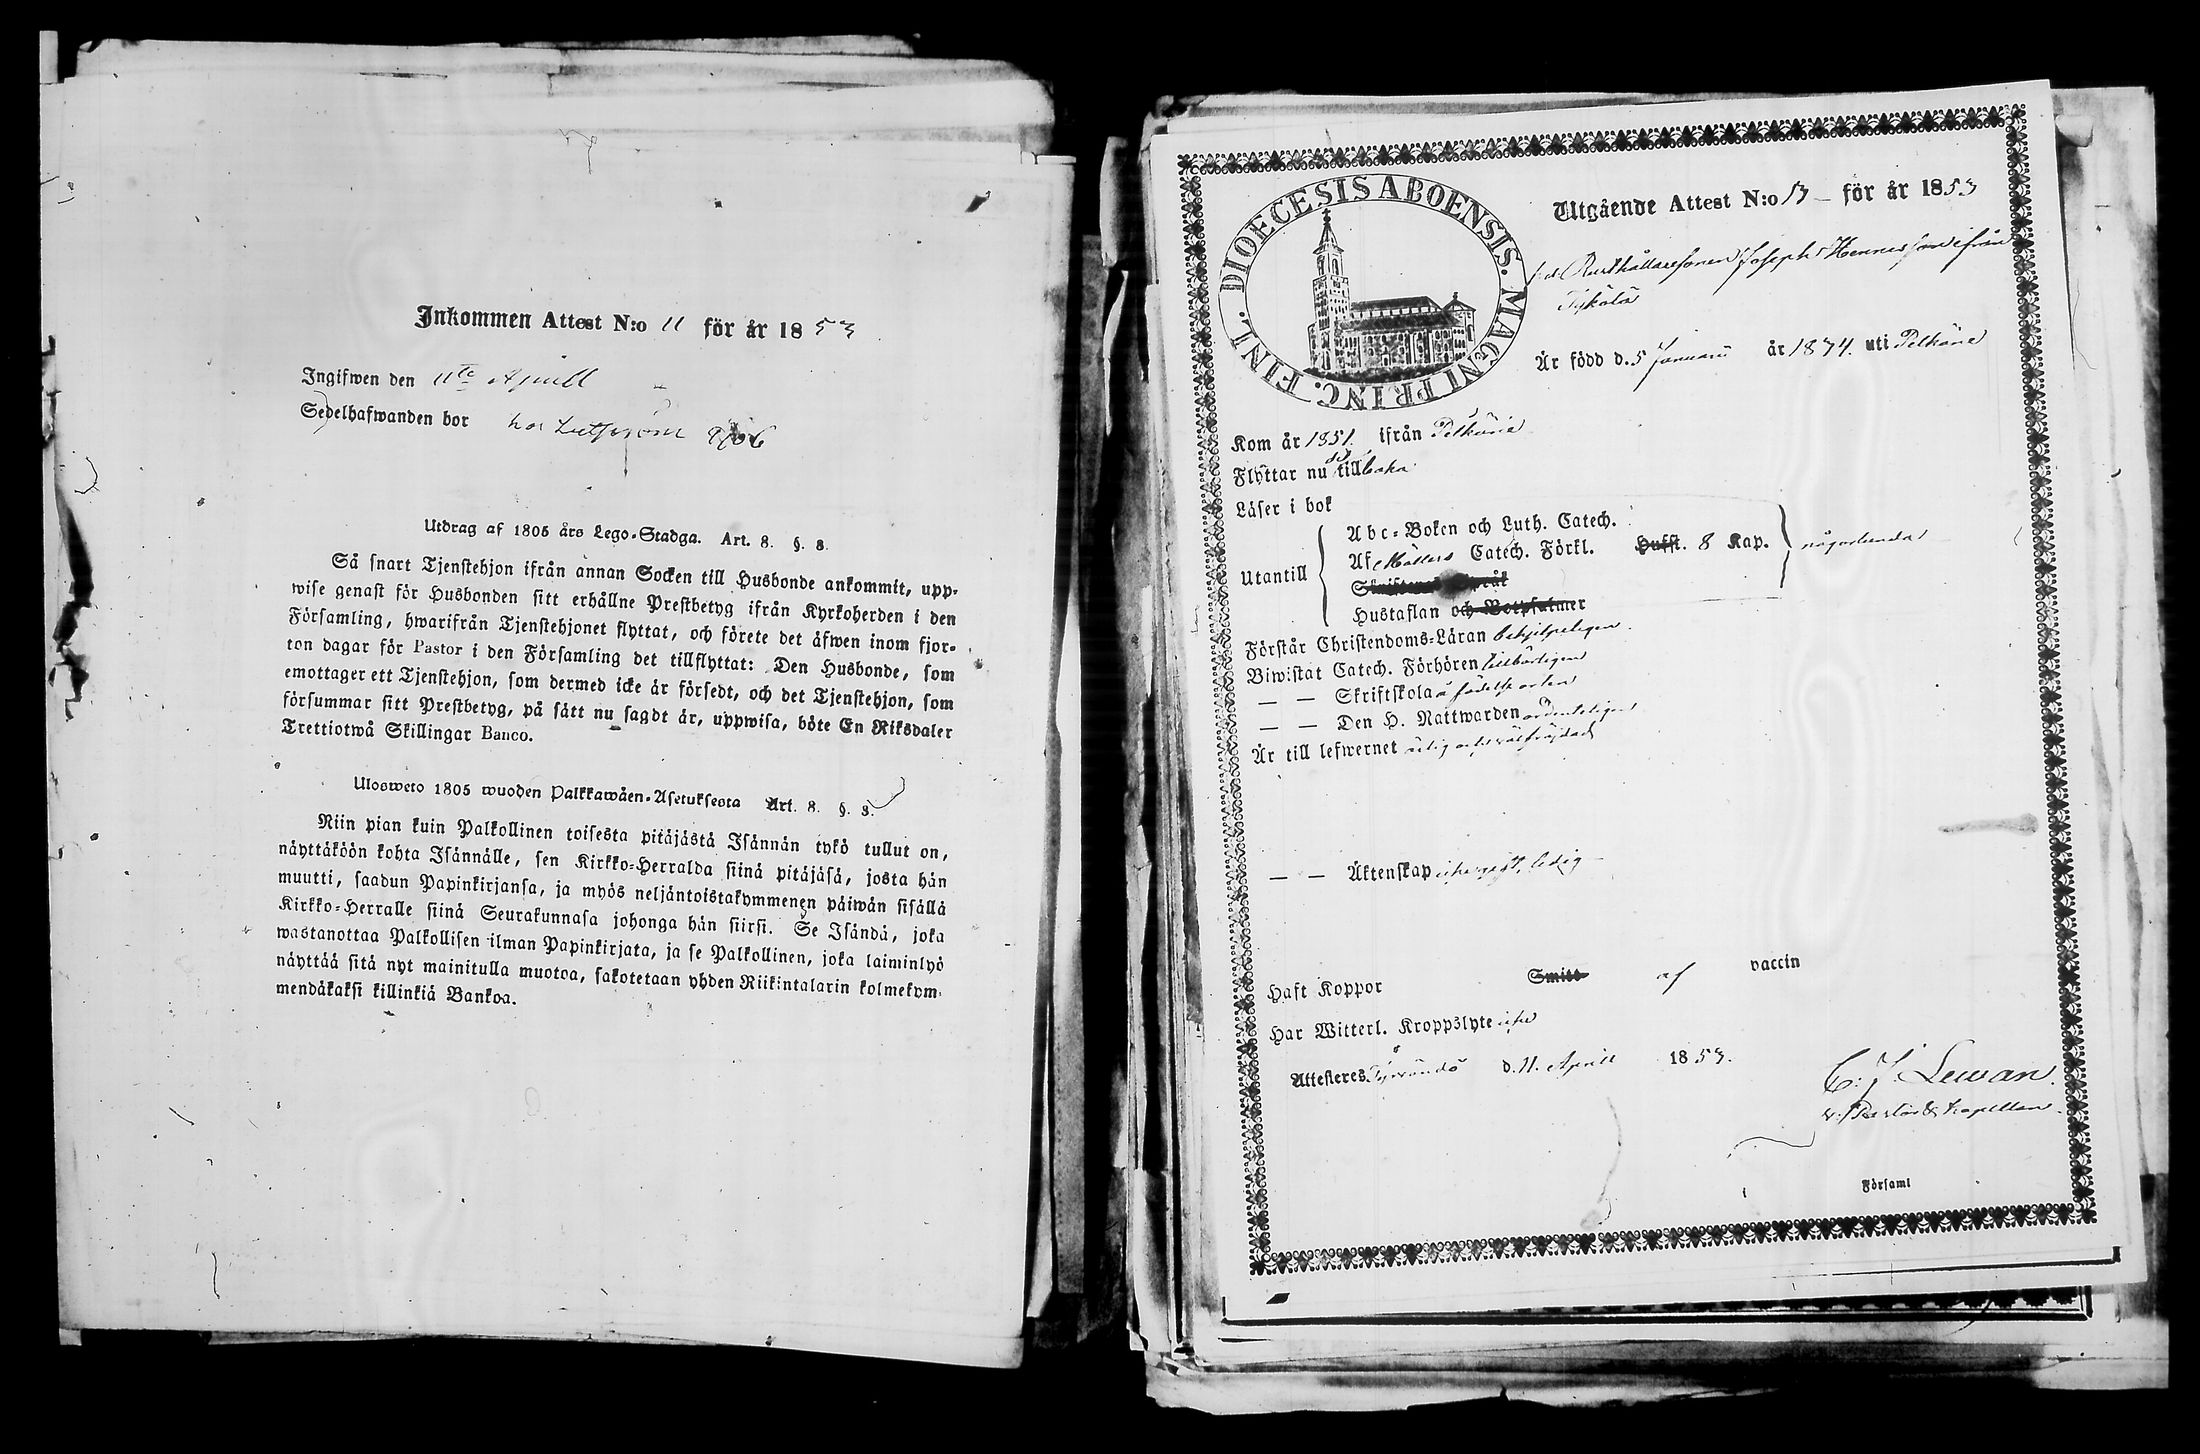 Inkommen Attest N:o 11 för år 1853
Ingifwen den 11te Aprill
Sedelhafwanden bor hos
Utdrag af 1805 års Lego-Stadga. Art. 8. §. 8.
Så snart Tjenstehjon ifrån annan Socken till Husbonde ankommit, upp-
wise genast för Husbonden sitt erhållne Prestbetyg ifrån Kyrkoherden i den
Församling, hwarifrån Tjenstehjonet flyttat, och förete det äfwen inom fjor-
ton dagar för Pastor i den Församling det tillflyttat: Den Husbonde, som
emottager ett Tjenstehjon, som dermed icke är försedt, och det Tjenstehjon, som
försummar sitt Prestbetyg, på sätt nu sagdt är, uppwisa, böte En Riksdaler
Trettiotwå Skillingar Banco.
Ulosweto 1805 wuoden Palkkawäen-Asetuksesta Art. 8. §. 8.
Niin pian kuin Palkollinen toisesta pitäjästä Isännän tykö tullut on,
näyttäköön kohta Isännälle, sen Kirkko-Herralda siinä pitäjäsä, josta hän
muutti, saadun Papinkirjansa, ja myös neljäntoistakymmenen päiwän sisällä
Kirkko-Herralle siinä Seurakunnasa johonga hän siirsi. Se Isändä, joka
wastanottaa Palkollisen ilman Papinkirjata, ja se Palkollinen, joka laiminlyö
näyttää sitä nyt mainitulla muotoa, sakotetaan yhden Riikintalarin kolmekym-
mendäkaksi killinkiä Bankoa.
DIOECESIS ABOENSIS. MAGNI PRINC. FINL.
Utgående Attest N:o 13 för år 1853
f.d. Rusthållaresonen Joseph Hennesson ifrån
Är född d. 5 Januarii år 1874. uti Pelkäne
Kom år 1851. ifrån Pelkäne
Flyttar nu dit tillbaka
Läser i bok
Utantill
Abc-Boken och Luth. Catech.
Af Möllers Catech. Förkl. Hufst. 8 Kap. någorlunda
Skriftenes Språk
Hustaflan och Botpsalmer
Förstår Christendoms-Läran behjelpeligen
Biwistat Catech. Förhören tillbörligen
— — Skriftskola å födelseorten
— — Den H. Nattwarden ordenteligen
Är till lefwernet ärlig och wälfräjdad
— — Äktenskap icke gift, ledig
Haft Koppor Smitt af vaccin
Har Witterl. Kroppslyte icke
Attesteres Tyrvändö d. 11. Aprill 1853.
C. J. Lewan.
v. Pastor & Kapellan.
Församl